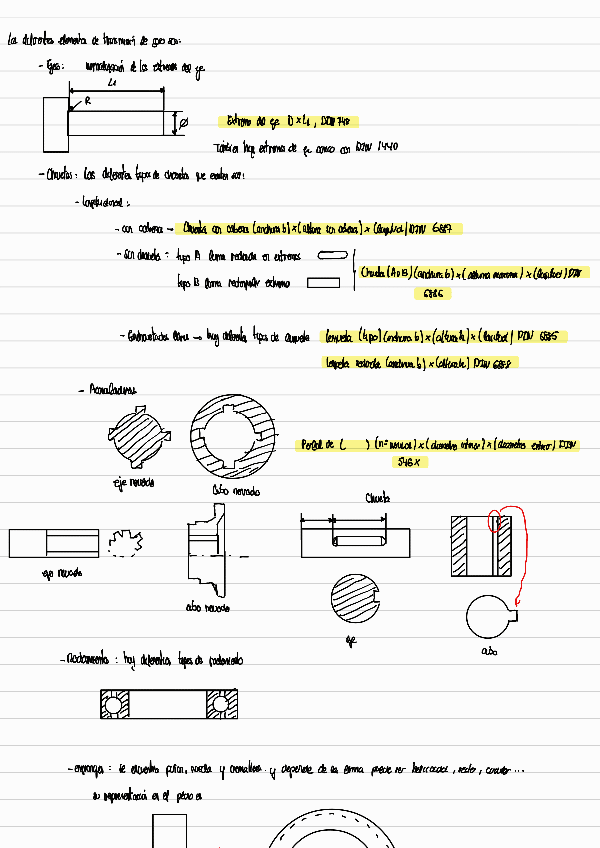 Los diferentes elementos de transmisión de giro son:
- Ejes: normalización de los extremos del eje
L1
R
Ø
Extremo de eje D x L1, DIN 748
También hay extremo de eje cónico con DIN 1440
- Chavetas: Los diferentes tipos de chavetas que existen son:
- Longitudinal:
- con cabeza → Chaveta con cabeza (anchura b) x (altura sin cabeza) x (longitud) DIN 6887
- Sin cabeza: tipo A forma redonda en extremos
tipo B forma rectangular extremo
Chaveta (A o B) (anchura b) x (altura) x (longitud) DIN
6886
hay diferentes tipos de chaveta
Lengüeta (tipo) (anchura b) x (altura h) x (longitud) DIN 6885
Lengüeta redonda (anchura b) x (altura h) DIN 6888
- Acanaladuras
Perfil de ( ) (nº nervios) x (diametro interior) x (diametro exterior) DIN
5462
eje nervado
cubo nervado
Chaveta
eje nervado
cubo nervado
eje
cubo
- Rodamientos: hay diferentes tipos de rodamiento
- engranajes: se encuentra piñon, rueda y cremallera y depende de su forma puede ser helicoidal, recto, ...
su representación en el plano es